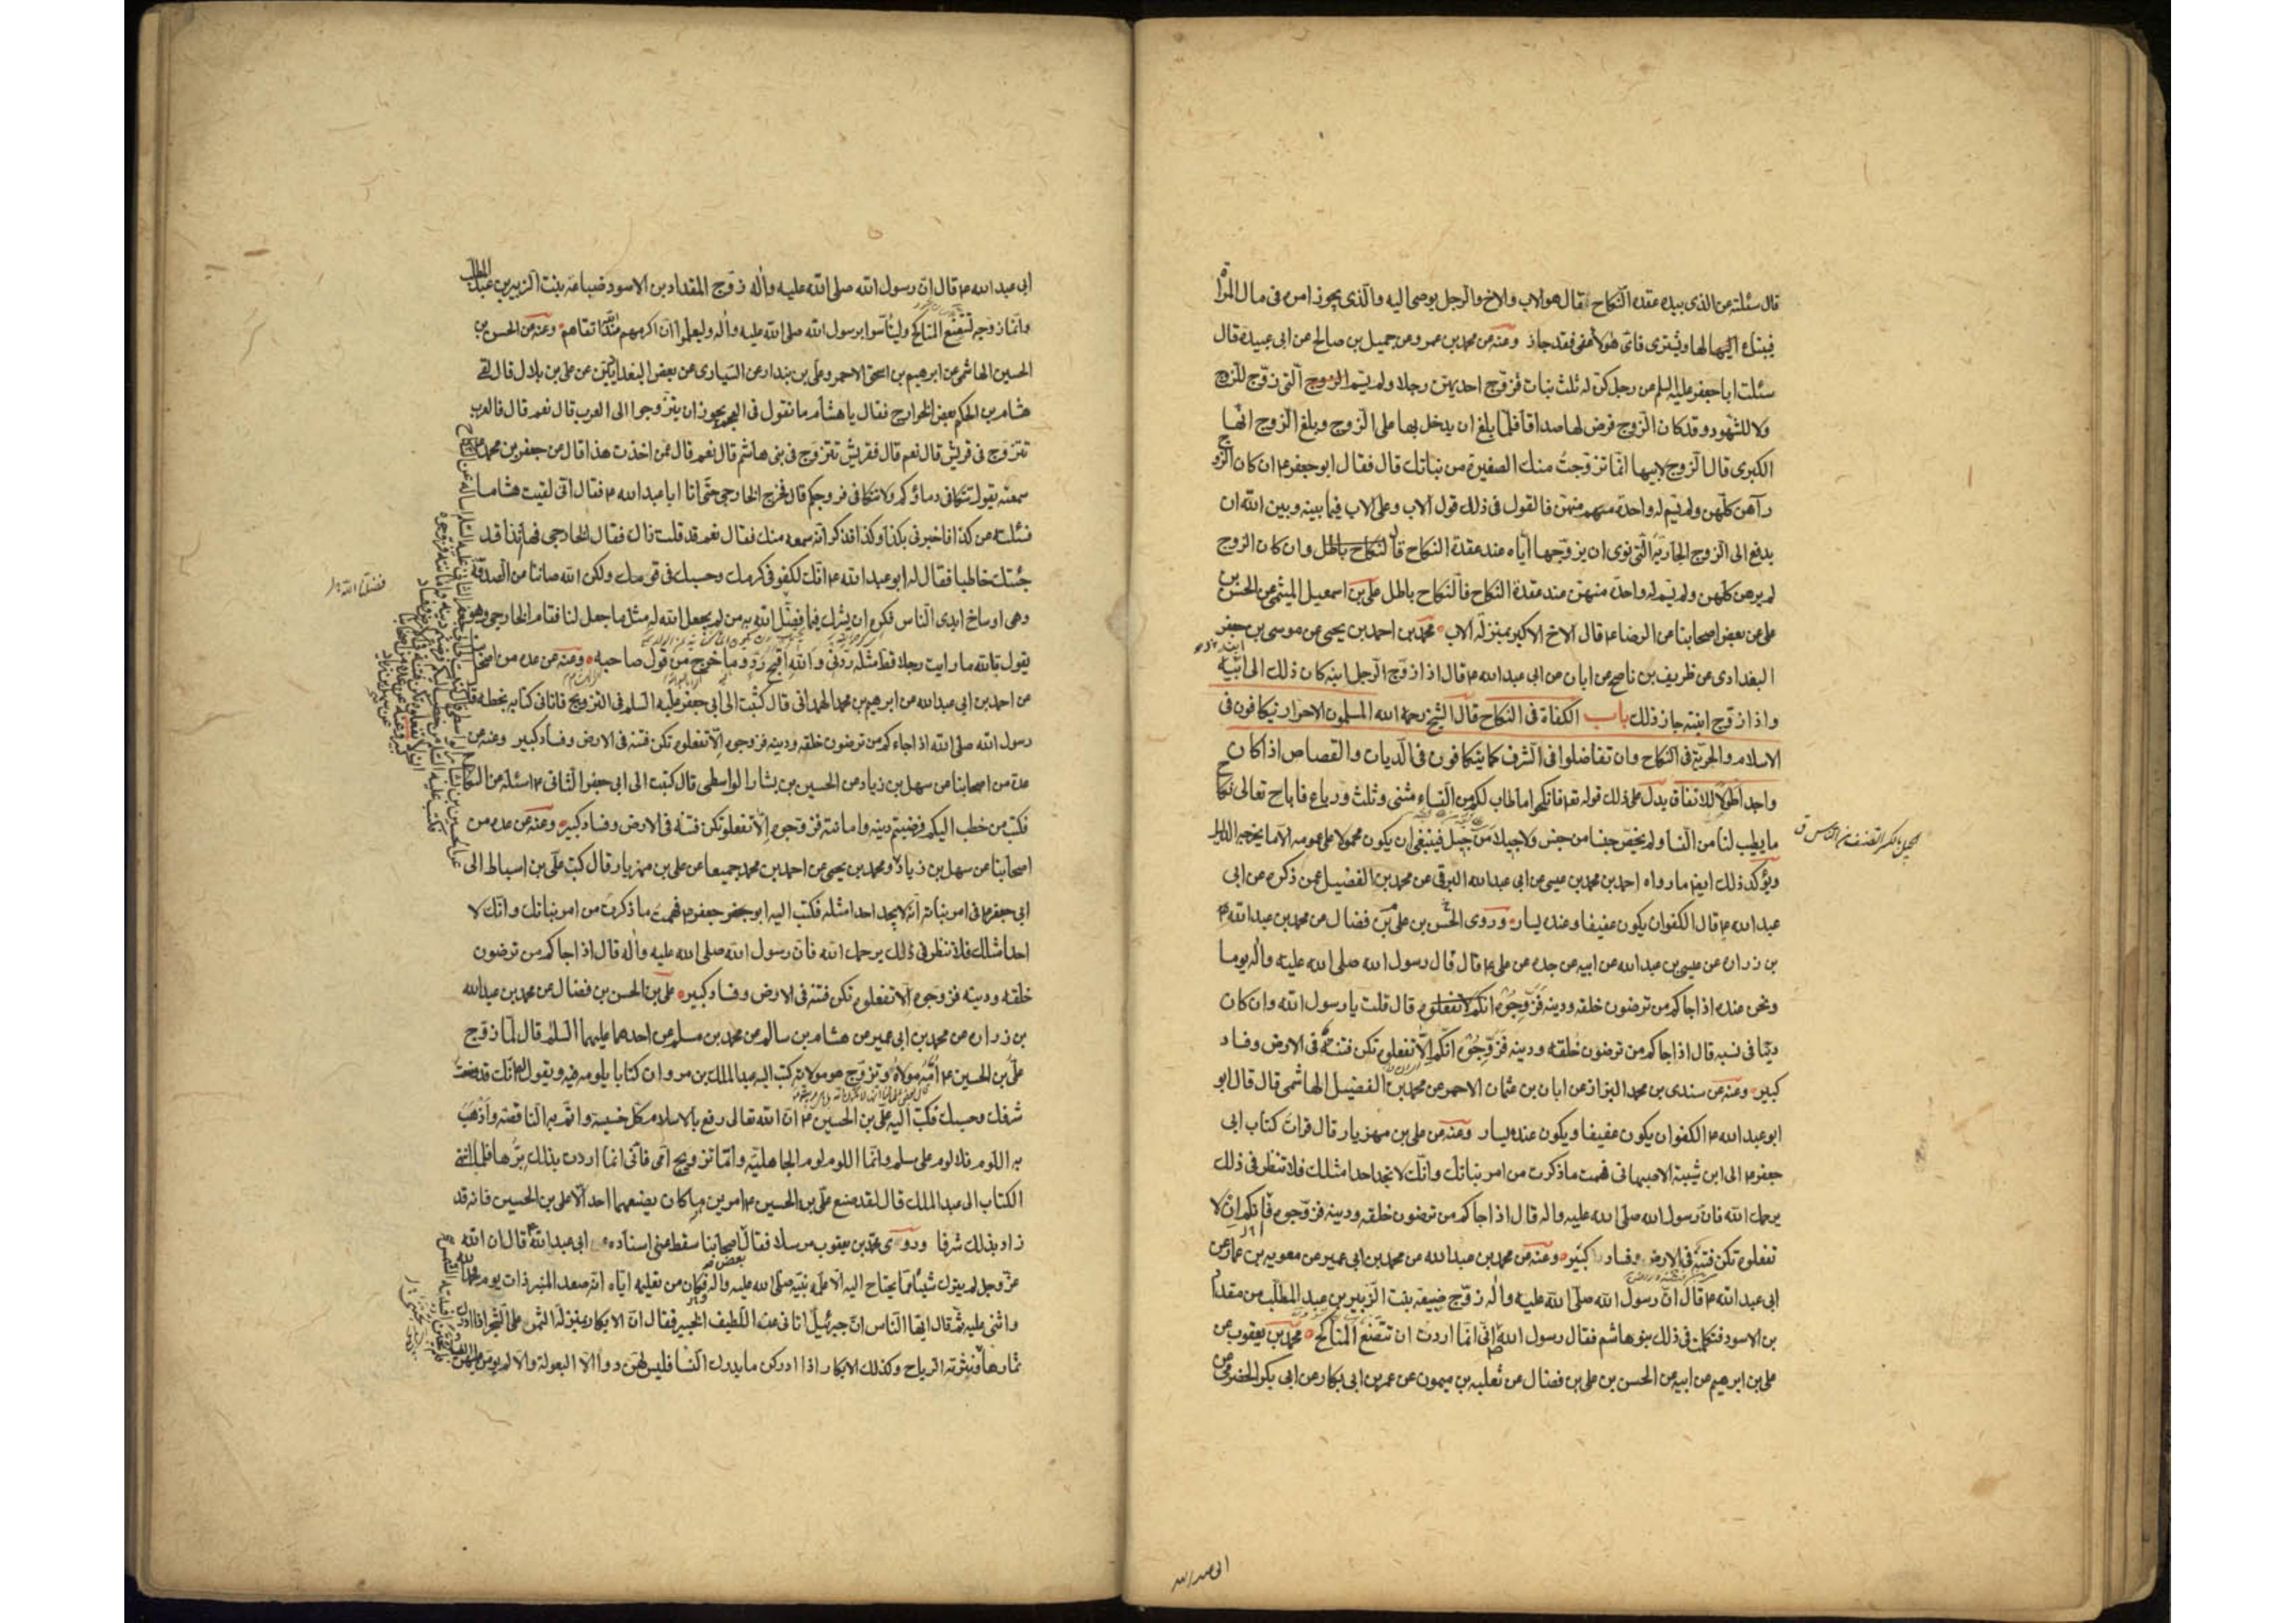 قال سئلته عن الذى بيده عقدة النكاح قال هو الاب والاخ والرجل يوصى اليه والذى يجوز امره فى مال المرأة
فيبتاع لها ويشترى فاى هؤلاء عفى فقد جاز وعنه عن محمد بن عمرو عن جميل بن صالح عن ابى عبيدة قال
سئلت ابا جعفر عليه السلم عن رجل كن له ثلث بنات فزوج احديهن رجلا ولم يسم التى زوج للزوج
ولا للشهود وقد كان الزوج فرض لها صداقا فلما بلغ ان يدخل بها على الزوج وبلغ الزوج انها
الكبرى قال الزوج لابيها انما تزوجت منك الصغيرة من بناتك قال فقال ابو جعفر ع ان كان الزوج
رآهن كلهن ولم يسم له واحدة منهن فالقول فى ذلك قول الاب وعلى الاب فيما بينه وبين الله ان
يدفع الى الزوج الجارية التى نوى ان يزوجها اياه عند عقدة النكاح قال وان كان الزوج
لم يرهن كلهن ولم يسم له واحدة منهن عند عقدة النكاح فالنكاح باطل على بن اسمعيل الميثمى عن الحسن بن
على عن بعض اصحابنا عن الرضا ع قال الاخ الاكبر بمنزلة الاب محمد بن احمد بن يحيى عن موسى بن جعفر
البغدادى عن ظريف بن ناصح عن ابان عن ابى عبد الله ع قال اذا زوج الرجل ابنه كان ذلك الى ابنه
واذا زوج ابنته جاز ذلك باب الكفاة فى النكاح قال الشيخ رحمة الله المسلمون الاحرار يتكافون فى
الاسلام والحرية فى النكاح وان تفاضلوا فى الشرف كما يتكافون فى الديات والقصاص اذا كان
واجدا طولا للانفاق يدل على ذلك قوله تعا فانكحوا ما طاب لكم من النساء مثنى وثلث ورباع فاباح تعالى نكاح
ما يطيب لنا من النسا ولم يخص جنسا من جنس ولا جيلا من جيل فينبغى ان يكون محمولا على عمومه الا ما يخرجه الدليل
ويؤكد ذلك ايضا ما رواه احمد بن محمد بن عيسى عن ابى عبد الله البرقى عن محمد بن الفضيل عمن ذكره عن ابى
عبد الله ع قال الكفو ان يكون عفيفا وعنده يسار وروى الحسن بن على بن فضال عن محمد بن عبد الله
بن زراره عن عيسى بن عبد الله عن ابيه عن جده عن على ع قال قال رسول الله صلى الله عليه واله يوما
ونحن عنده اذا جاكم من ترضون خلقه ودينه فزوجوه قال قلت يا رسول الله وان كان
دنيا فى نسبه قال اذا جاكم من ترضون خلقه ودينه فزوجوه انكم الا تفعلوه تكن فتنة فى الارض وفساد
كبير وعنه عن سندى بن محمد البزاز عن ابان بن عثمان الاحمر عن محمد بن الفضيل الهاشمى قال قال ابو
ابو عبد الله ع الكفو ان يكون عفيفا ويكون عنده يسار وعنه عن على بن مهزيار قال قرات كتاب ابى
جعفر ع الى ابن شيبة الاصبهانى فهمت ما ذكرت من امر بناتك وانك لا تجد احدا مثلك فلا تنظر فى ذلك
يرحمك الله فان رسول الله صلى الله عليه واله قال اذا جاكم من ترضون خلقه ودينه فزوجوه فانكم ان لا
تفعلوه تكن فتنة فى الارض وفساد كبير وعنه عن محمد بن عبد الله عن محمد بن ابى عمير عن معويه بن عمار عن
ابى عبد الله ع قال ان رسول الله صلى الله عليه واله زوج ضبيعه بنت الزبير بن عبد المطلب من مقداد
بن الاسود فتكلمت فى ذلك بنو هاشم فقال رسول الله ص انى انما اردت ان تتضع المناكح محمد بن يعقوب عن
على بن ابرهيم عن ابيه عن الحسن بن على بن فضال عن ثعلبه بن ميمون عن عمر بن ابى بكار عن ابى بكر الحضرمى عن
ابى عبد الله
ابى عبد الله ع قال ان رسول الله صلى الله عليه واله زوج المقداد بن الاسود ضباعه بنت الزبير بن عبد المطلب
وانما زوجه لتتضع المناكح وليتأسوا برسول الله صلى الله عليه واله وليعلموا ان اكرمهم عند الله اتقاهم وعنه عن الحسن بن
الحسين الهاشمى عن ابرهيم بن اسحق الاحمر وعلى بن بندار عن السيارى عن بعض البغداديين عن على بن بلال قال لقى
هشام بن الحكم بعض الخوارج فقال يا هشام ما تقول فى العجم يجوز ان يتزوجوا الى العرب قال نعم قال فالعرب
تتزوج فى قريش قال نعم قال فقريش تتزوج فى بنى هاشم قال نعم قال عمن اخذت هذا قال عن جعفر بن محمد
سمعته يقول تتكافى دماؤكم ولا تتكافى فروجكم قال فخرج الخارجى حتى اتى ابا عبد الله ع فقال انى لقيت هشاما
فسئلته عن كذا فاخبرنى بكذا وكذا فذكر انه سمعه منك فقال نعم قد قلت ذاك فقال الخارجى فها انذا قد
جئتك خاطبا فقال له ابو عبد الله ع انك لكفو فى كرمك وحسبك فى قومك ولكن الله صاننا عن الصدقة
وهى اوساخ ايدى الناس فنكره ان نشرك فيما فضلنا الله به من لم يجعل الله له مثل ما جعل لنا فقام الخارجى وهو
يقول تالله ما رايت رجلا قط مثله ردنى والله اقبح رد وما خرج من قول صاحبه وعنه عن عدة من اصحابنا
عن احمد بن ابى عبد الله عن ابرهيم بن محمد الهمدانى قال كتبت الى ابى جعفر عليه السلم فى التزويج فاتانى كتابه بخطه قال
رسول الله صلى الله اذا جاءكم من ترضون خلقه ودينه فزوجوه الا تفعلوه تكن فتنة فى الارض وفساد كبير وعنه عن
عدة من اصحابنا عن سهل بن زياد عن الحسين بن بشار الواسطى قال كتبت الى ابى جعفر الثانى ع اسئله عن النكاح
فكتب من خطب اليكم فرضيتم دينه وامانته فزوجوه الا تفعلوه تكن فتنة فى الارض وفساد كبير وعنه عن عدة من
اصحابنا عن سهل بن زياد ومحمد بن يحيى عن احمد بن محمد جميعا عن على بن مهزيار قال كتب على بن اسباط الى
ابى جعفر ع فى امر بناته انه لا يجد احدا مثله فكتب اليه ابو جعفر ع فهمت ما ذكرت من امر بناتك وانك لا
احدا مثلك فلا تنظر فى ذلك يرحمك الله فان رسول الله صلى الله عليه واله قال اذا جاكم من ترضون
خلقه ودينه فزوجوه الا تفعلوه تكن فتنة فى الارض وفساد كبير على بن الحسن بن فضال عن محمد بن عبد الله
بن زراره عن محمد بن ابى عمير عن هشام بن سالم عن محمد بن مسلم عن احدهما عليهما السلم قال لما زوج
على بن الحسين ع امه مولاه وتزوج هو مولاته كتب اليه عبد الملك بن مروان كتابا يلومه فيه ويقول انك قد وضعت
شرفك وحسبك فكتب اليه على بن الحسين ع ان الله تعالى رفع بالاسلام كل خسيسة واتم به الناقصة واذهب
به اللوم فلا لوم على مسلم وانما اللوم لوم الجاهلية واما تزويج امى فانى انما اردت بذلك برها فلما انتهى
الكتاب الى عبد الملك قال لقد صنع على بن الحسين ع امرين ما كان يصنعهما احد الا على بن الحسين فانه قد
زاد بذلك شرفا وروى محمد بن يعقوب مرسلا فقال بعض اصحابنا سقط عنى اسناده ابى عبد الله ع قال ان الله
عز وجل لم يترك شيئا مما يحتاج اليه الا علمه نبيه صلى الله عليه واله فكان من تعليمه اياه انه صعد المنبر ذات يوم فحمد الله
واثنى عليه ثم قال ايها الناس ان جبرئيل اتانى عن اللطيف الخبير فقال ان الابكار بمنزلة الثمر على الشجر اذا ادرك
ثمارها فنثرته الرياح وكذلك الابكار اذا ادركن ما يدرك النسا فليس لهن دوا الا البعولة والا لم يؤمن عليهن